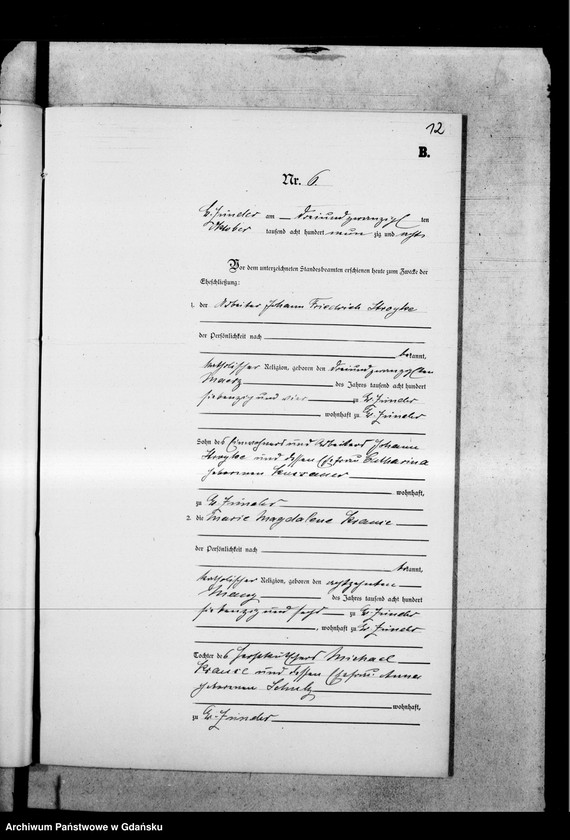 12
B.
Nr. 6.
Gr. Zünder am dreiundzwanzigsten ten
Oktober tausend acht hundert neun zig und acht
Vor dem unterzeichneten Standesbeamten erschienen heute zum Zwecke der
Eheschließung:
1. der Arbeiter Johann Friedrich
der Persönlichkeit nach
bekannt,
katholischer Religion, geboren den dreiundzwanzigsten
Maerz des Jahres tausend acht hundert
siebenzig und vier zu Gr. Zünder
, wohnhaft zu Gr. Zünder
Sohn des Einwohners und Arbeiters Johann
und dessen Ehefrau Catharina
geborenen
wohnhaft,
zu Gr. Zünder
2. die Marie Magdalene Krause
der Persönlichkeit nach
bekannt,
katholischer Religion, geboren den achtzehnten
Maerz des Jahres tausend acht hundert
siebenzig und sechs zu Gr. Zünder
, wohnhaft zu Gr. Zünder
Tochter des Michael
Krause und dessen Ehefrau Anna
geborenen Schulz
wohnhaft,
zu Gr. Zünder
Archiwum Państwowe w Gdańsku